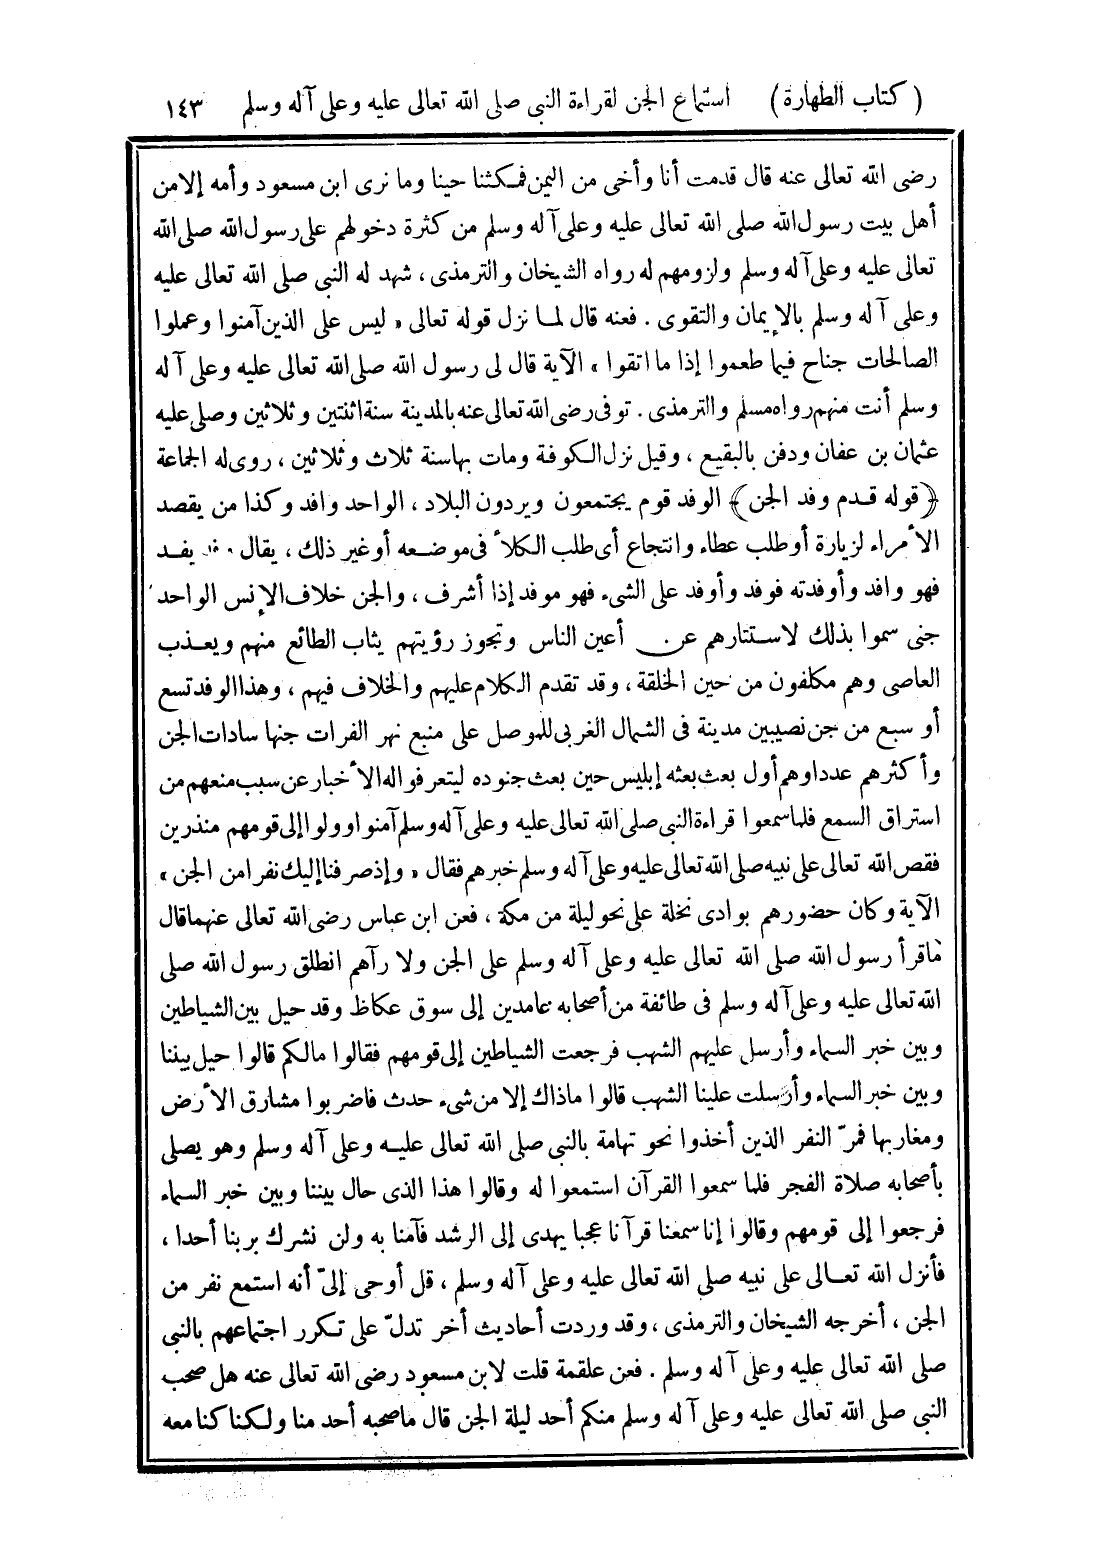 ( كتاب الطهارة ) استماع الجن لقراءة النبى صلى الله تعالى عليه وعلى آله وسلم ١٤٣
رضى الله تعالى عنه قال قدمت أنا وأخى من اليمن فمكثنا حينا وما نرى ابن مسعود وأمه إلا من
أهل بيت رسول الله صلى الله تعالى عليه وعلى آله وسلم من كثرة دخولهم على رسول الله صلى الله
تعالى عليه وعلى آله وسلم ولزومهم له رواه الشيخان والترمذى ، شهد له النبى صلى الله تعالى عليه
وعلى آله وسلم بالإيمان والتقوى . فعنه قال لما نزل قوله تعالى « ليس على الذين آمنوا وعملوا
الصالحات جناح فيما طعموا إذا ما اتقوا » الآية قال لى رسول الله صلى الله تعالى عليه وعلى آله
وسلم أنت منهم رواه مسلم والترمذى . توفى رضى الله تعالى عنه بالمدينة سنة اثنتين وثلاثين وصلى عليه
عثمان بن عفان ودفن بالبقيع ، وقيل نزل الكوفة ومات بها سنة ثلاث وثلاثين ، روى له الجماعة
﴿قوله قدم وفد الجن﴾ الوفد قوم يجتمعون ويردون البلاد ، الواحد وافد وكذا من يقصد
الأمراء لزيارة أو طلب عطاء وانتجاع أى طلب الكلأ فى موضعه أو غير ذلك ، يقال يفد
فهو وافد وأوفدته فوفد وأوفد على الشىء فهو موفد إذا أشرف ، والجن خلاف الإنس الواحد
جنى سموا بذلك لاستتارهم عن أعين الناس وتجوز رؤيتهم يثاب الطائع منهم ويعذب
العاصى وهم مكلفون من حين الخلقة ، وقد تقدم الكلام عليهم والخلاف فيهم ، وهذا الوفد تسع
أو سبع من جن نصيبين مدينة فى الشمال الغربى للموصل على منبع نهر الفرات جنها سادات الجن
وأكثرهم عددا وهم أول بعث بعثه إبليس حين بعث جنوده ليتعرفوا له الأخبار عن سبب منعهم من
استراق السمع فلما سمعوا قراءة النبى صلى الله تعالى عليه وعلى آله وسلم آمنوا وولوا إلى قومهم منذرين
فقص الله تعالى على نبيه صلى الله تعالى عليه وعلى آله وسلم خبرهم فقال « وإذ صرفنا إليك نفرا من الجن »
الآية وكان حضورهم بوادى نخلة على نحو ليلة من مكة ، فعن ابن عباس رضى الله تعالى عنهما قال
ماقرأ رسول الله صلى الله تعالى عليه وعلى آله وسلم على الجن ولا رآهم انطلق رسول الله صلى
الله تعالى عليه وعلى آله وسلم فى طائفة من أصحابه عامدين إلى سوق عكاظ وقد حيل بين الشياطين
وبين خبر السماء وأرسل عليهم الشهب فرجعت الشياطين إلى قومهم فقالوا مالكم قالوا حيل بيننا
وبين خبر السماء وأرسلت علينا الشهب قالوا ماذاك إلا من شىء حدث فاضربوا مشارق الأرض
ومغاربها فمرّ النفر الذين أخذوا نحو تهامة بالنبى صلى الله تعالى عليه وعلى آله وسلم وهو يصلى
بأصحابه صلاة الفجر فلما سمعوا القرآن استمعوا له وقالوا هذا الذى حال بيننا وبين خبر السماء
فرجعوا إلى قومهم وقالوا إنا سمعنا قرآنا عجبا يهدى إلى الرشد فآمنا به ولن نشرك بربنا أحدا ،
فأنزل الله تعالى على نبيه صلى الله تعالى عليه وعلى آله وسلم ، قل أوحى إلىّ أنه استمع نفر من
الجن ، أخرجه الشيخان والترمذى ، وقد وردت أحاديث أخر تدلّ على تكرر اجتماعهم بالنبى
صلى الله تعالى عليه وعلى آله وسلم . فعن علقمة قلت لابن مسعود رضى الله تعالى عنه هل صحب
النبى صلى الله تعالى عليه وعلى آله وسلم منكم أحد ليلة الجن قال ماصحبه أحد منا ولكنا كنا معه